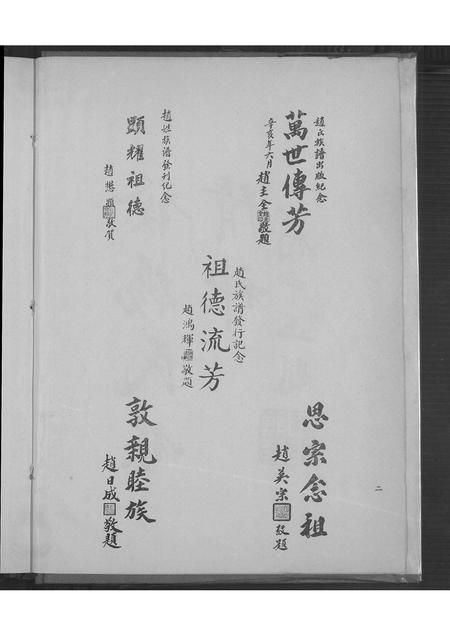 趙氏族譜出版紀念
萬世傳芳
辛亥年六月
趙主全
敬題
趙姓族譜發刊紀念
顯耀祖德
趙懋
敬賀
趙氏族譜發行記念
祖德流芳
趙鴻輝
敬題
思宗念祖
趙美宗
敬題
敦親睦族
趙日成
敬題
二